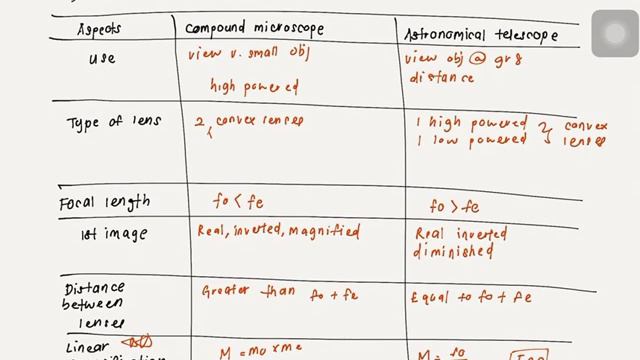 Aspects
compound microscope
Astronomical telescope
use
view v. small obj
high powered
view obj @ gr8
distance
Type of lens
2 convex lenses
1 high powered
1 low powered
convex
lenses
Focal length
fo < fe
fo > fe
1st image
Real, inverted, magnified
Real inverted
diminished
Distance
between
lenses
Greater than fo + fe
Equal to fo + fe
Linear
M = mo x me
M =